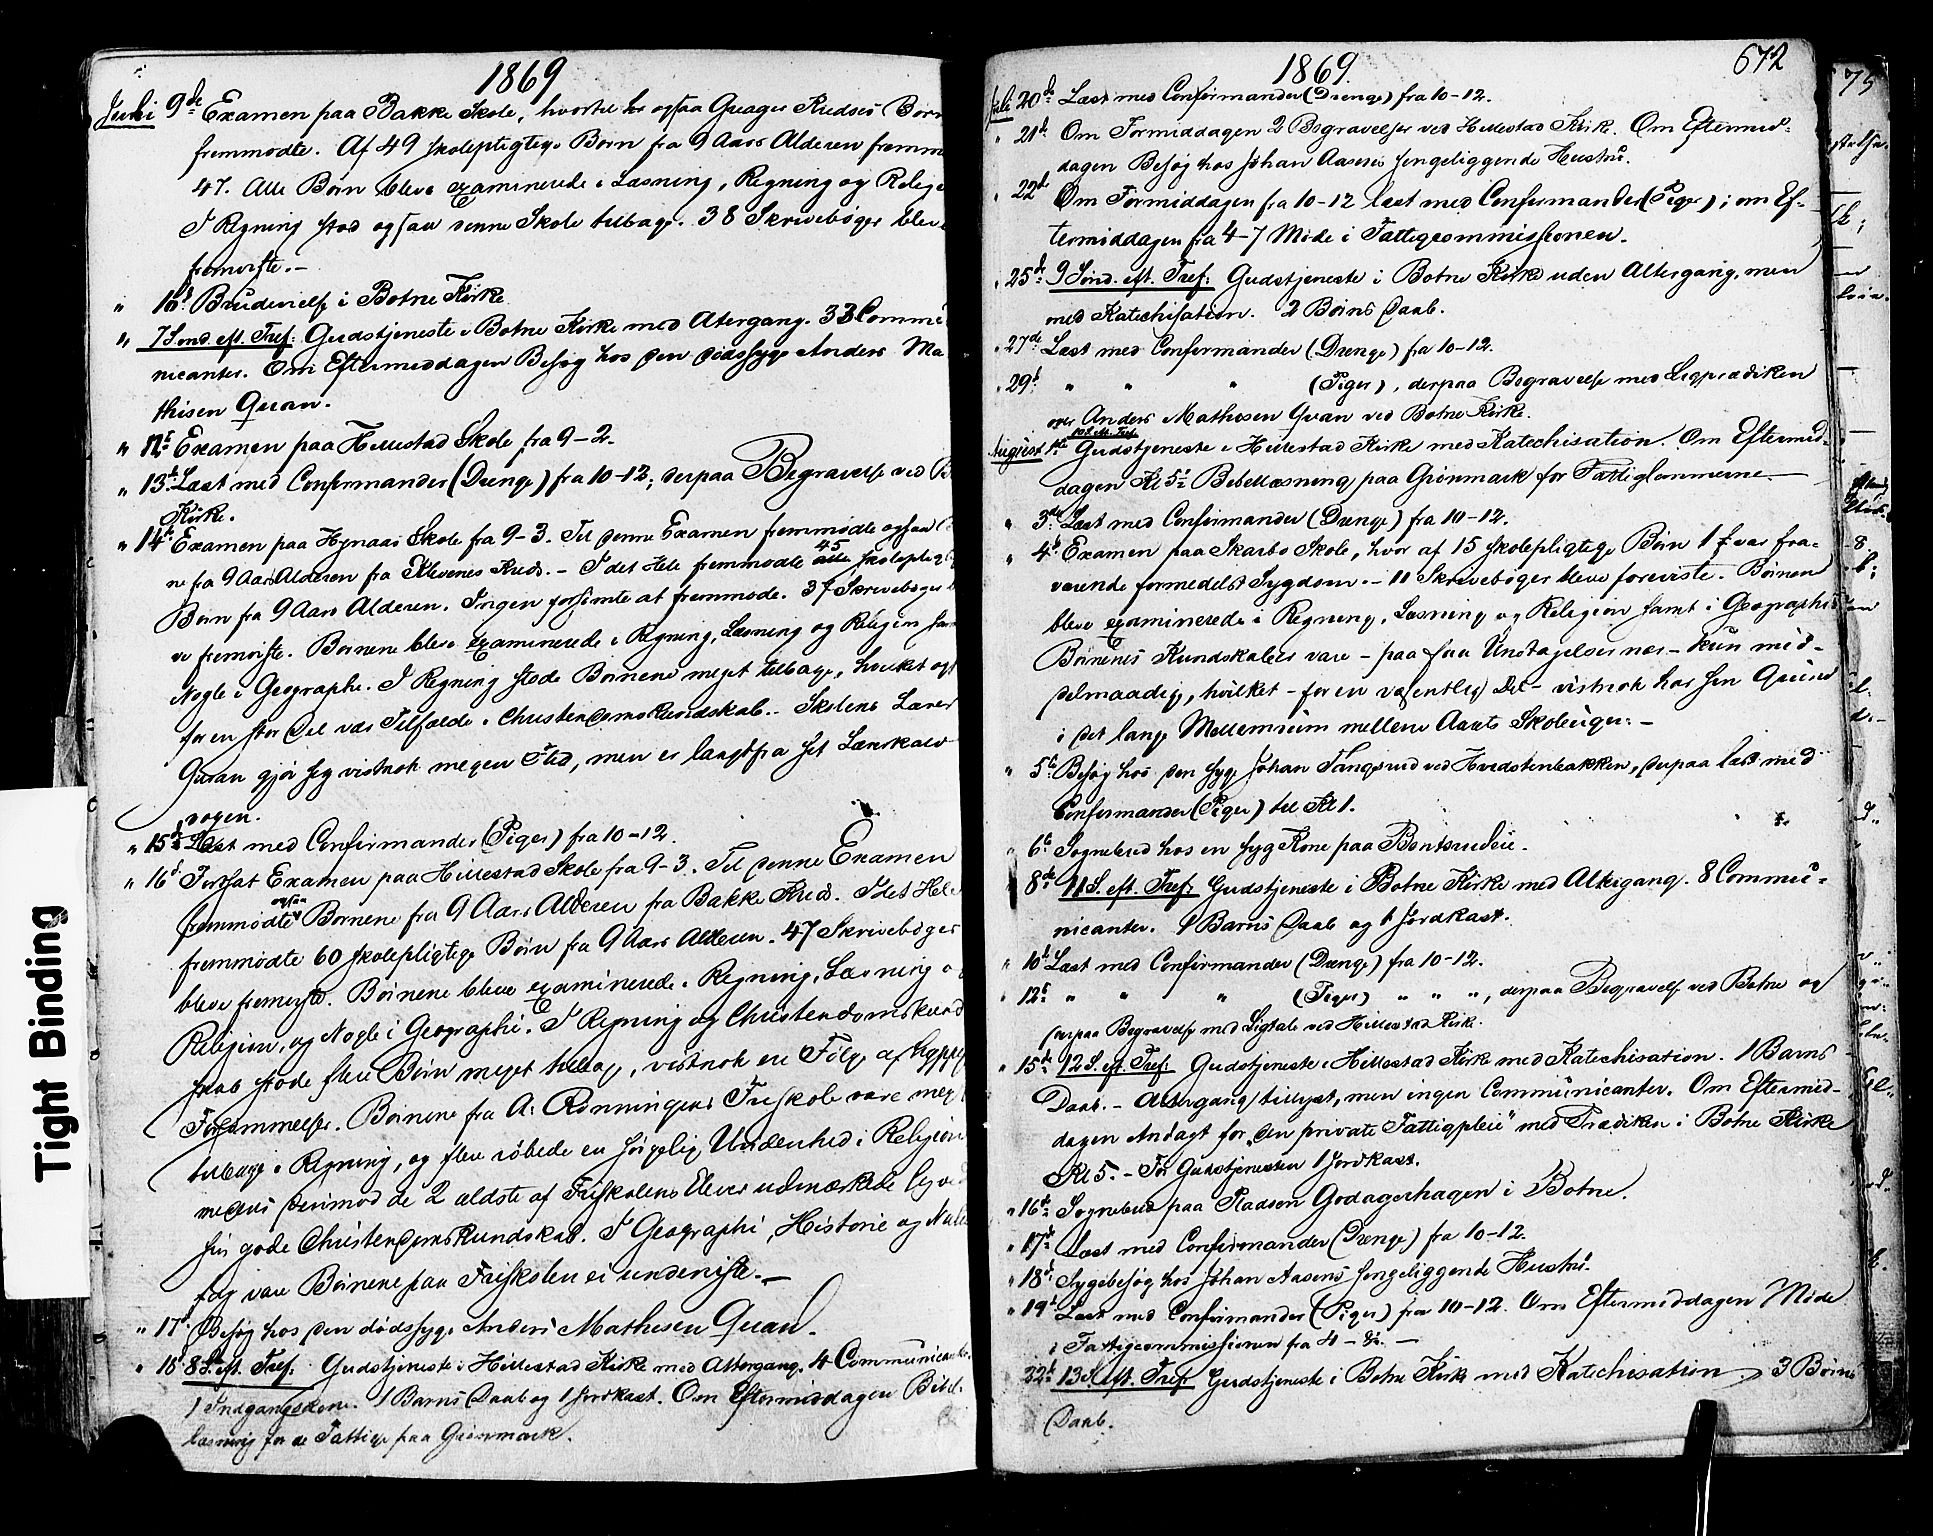 1869
Juli 9de Examen paa Bakke Skole, hvortil her ogsaa Qvager Kredses Børn
fremmødte. Af 49 skolepligtige Børn fra 9 Aars Alderen fremm
47. Alle Børn bleve examinerede i Læsning, Regning og Relig
I Regning stod ogsaa denne Skole tilbage. 38 Skrivebøger blev
fremviste.-
" 10d Brudevielse i Botne Kirke
" 7 Sønd. eft. Tref: Gudstjeneste i Botne Kirke med Altergang. 33 Commu
nicanter. Om Eftermiddagen Besøg hos den dødssyge Anders Ma
thisen Qvan.
" 12t Examen paa Hillestad Skole fra 9-2.
" 13t Læst med Confirmander (Drenge) fra 10-12; derpaa Begravelse ved B
Kirke.
" 14t Examen paa Hynaas Skole fra 9-3. Til denne Examen fremmødte ogsaa
n fra 9 Aars Alderen fra Klevenes Kreds. - I det Hele fremmødte 45 skoleplig
Børn fra 9 Aars Alderen. Ingen forsømte at fremmøde. 37 Skrivebøger
e fremviste. Børnene bleve examinerede i Regning, Læsning og Religion sam
Nogle i Geographi. I Regning stode Børnene meget tilbage, hvilket ogs
for en stor Del var Tilfælde i Christendomskundskab. Skolens Lærer
Qvan gjør sig vistnok megen Flid, men er langtfra sit Lærerkald
voxen.
" 15d Læst med Confirmander (Piger) fra 10-12.
" 16d Fortsat Examen paa Hillestad Skole fra 9-3. Til denne Examen
fremmødte ogsaa Børnene fra 9 Aars Alderen fra Bakke Kred. I det Hele
fremmødte 60 skolepligtige Børn fra 9 Aars Alderen. 47 Skrivebøger
bleve fremviste. Børnene bleve examinerede i Regning, Læsning o
Religion, og Nogle i Geographi. I Regning og Christendomskund
skab stode flere Børn meget tilbage, vistnok en Følge af hyppig
Forsømmelse. Børnene fra A. Rønningens Friskole vare meg
tilbage i Regning, og flere røbede en sørgelig Uvidenhed i Religion
medens derimod de 2 ældste af Friskolens Elever udmærkede sig ve
sin gode Christendomskundskab. I Geographi, Historie og Natur
fag vare Børnene paa Friskolen ei underviste.-
" 17d Besøg hos den dødssyge Anders Mathesen Qvan.
" 18d 8 S. eft. Tref: Gudstjeneste i Hillestad Kirke med Altergang. 4 Communicante
1 Indgangskone. 1 Barns Daab og 1 Jordkast. Om Eftermiddagen Bibel
læsning for de Fattige paa Grønmark.
1869. 672
Juli 20d Læst med Confirmander (Drenge) fra 10-12.
" 21d Om Formiddagen 2 Begravelser ved Hillestad Kirk. Om Eftermid-
dagen Besøg hos Johan Aasens sengeliggende Hustru.
" 22d Om Formiddagen fra 10-12 læst med Confirmander (Piger); om Ef-
termiddagen fra 4-7 Møde i Fattigcommissionen.
" 25d 9 Sønd. eft. Tref: Gudstjeneste i Botne Kirke uden Altergang, men
med Katechisation. 2 Børns Daab.
" 27de Læst med Confirmander (Drenge) fra 10-12.
" 29d " " " (Piger), derpaa Begravelse med Ligprædiken
over Anders Mathesen Qvan ved Botne Kirke.
August 1ste 10 S. eft. Tref. Gudstjeneste i Hillestad Kirke med Katechisation. Om Eftermid-
dagen Kl 5 Bibellæsning paa Grønmark for Fattiglemmerne.
" 3de Læst med Confirmander (Drenge) fra 10-12.
" 4d Examen paa Skarbo Skole, hvor af 15 skolepligtige Børn 1 var fra-
værende formedelst Sygdom. - 11 Skrivebøger bleve foreviste. Børnene
bleve examinerede i Regning, Læsning og Religion samt i Geographi
Børnenes Kundskaber vare - paa faa Undtagelser nær - kun mid-
delmaadig, hvilket - for en væsentlig Del - vistnok har sin Grund
i det lange Mellemrum mellem Aarets Skoleuger. -
" 5t Besøg hos den syge Johan Tangerud ved Hvidstenbakken, derpaa læst med
Confirmander (Piger) til Kl 1.
" 6t Sognebud hos en syg Kone paa Bentsrudeie.
" 8de 11 S. eft. Tref: Gudstjeneste i Botne Kirke med Altergang. 8 Commu-
nicanter. 1 Barns Daab og 1 Jordkast.
" 10t Læst med Confirmander (Drenge) fra 10-12.
" 12t " " " (Piger) " " ", derpaa Begravelse ved Botne og
derpaa Begravelse med Ligtale ved Hillestad Kirke.
" 15d 12 S. eft. Tref: Gudstjeneste i Hillestad Kirke med Katechisation. 1 Barns
Daab. - Altergang tillyst, men ingen Communicanter. Om Eftermid-
dagen Andagt for "den private Fattigpleie" med Prædiken i Botne Kirke
Kl 5. - Før Gudstjenesten 1 Jordkast.
" 16de Sognebud paa Pladsen Godagerhagen i Botne.
" 17d Læst med Confirmander (Drenge) fra 10-12.
" 18d Sygebesøg hos Johan Aasens sengeliggende Hustru.
" 19d Læst med Confirmander (Piger) fra 10-12. Om Eftermiddagen Møde
i Fattigcommissionen fra 4 -
22d 13 S. eft. Tref: Gudstjeneste i Botne Kirk med Katechisation. 3 Børns
Daab.
Tight Binding